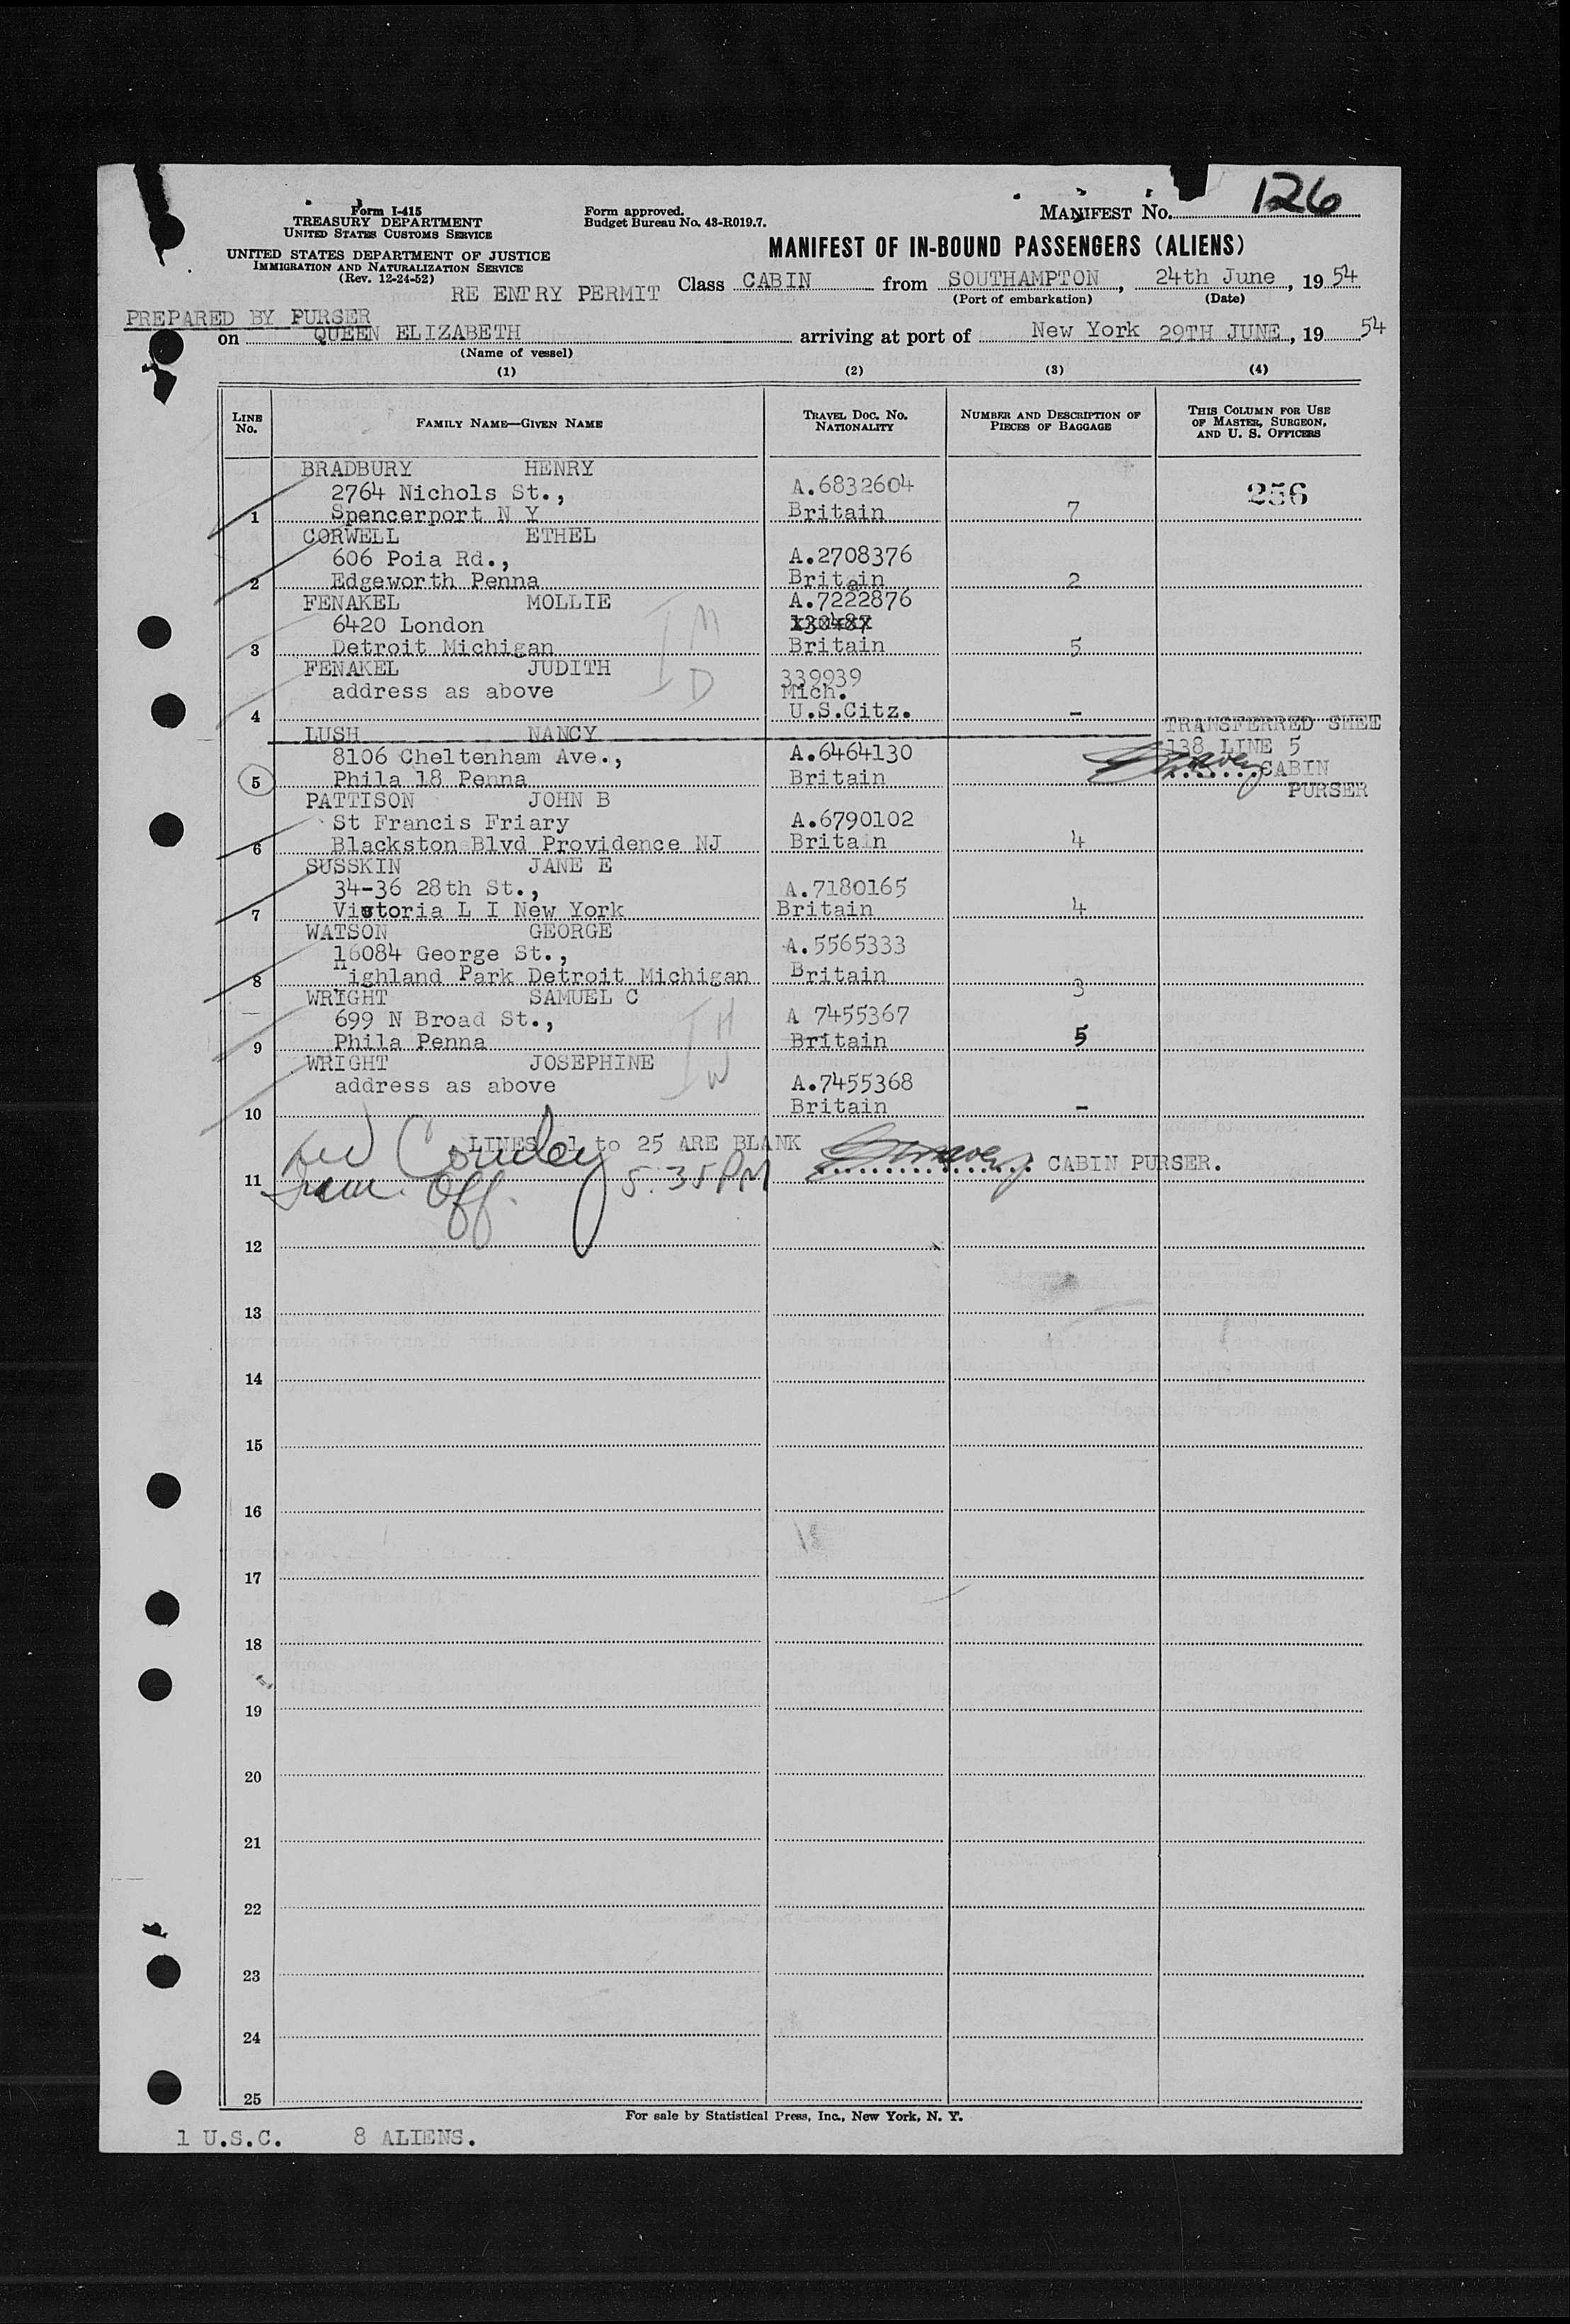 126
Form I-415
TREASURY DEPARTMENT
UNITED STATES CUSTOMS SERVICE
UNITED STATES DEPARTMENT OF JUSTICE
IMMIGRATION AND NATURALIZATION SERVICE
(Rev. 12-24-52)
Form approved.
Budget Bureau No. 43-R019.7.
MANIFEST No.
MANIFEST OF IN-BOUND PASSENGERS (ALIENS)
RE ENTRY PERMIT
Class CABIN from SOUTHAMPTON, 24th June, 1954
(Port of embarkation) (Date)
PREPARED BY PURSER
on QUEEN ELIZABETH arriving at port of New York 29TH JUNE, 19 54
(Name of vessel)
(1) (2) (3) (4)
LINE No. FAMILY NAME—GIVEN NAME TRAVEL DOC. NO. NATIONALITY NUMBER AND DESCRIPTION OF PIECES OF BAGGAGE THIS COLUMN FOR USE OF MASTER, SURGEON, AND U. S. OFFICERS
BRADBURY HENRY
2764 Nichols St., A.6832604 256
1 Spencerport N Y Britain 7
CORWELL ETHEL
606 Poia Rd., A.2708376
2 Edgeworth Penna Britain 2
FENAKEL MOLLIE A.7222876
6420 London
3 Detroit Michigan Britain 5
FENAKEL JUDITH 339939
address as above Mich.
4 U.S.Citz. -
LUSH NANCY TRANSFERRED SHEE
8106 Cheltenham Ave., A.6464130 138 LINE 5
5 Phila 18 Penna Britain CABIN
PURSER
PATTISON JOHN B
St Francis Friary A.6790102
6 Blackston Blvd Providence NJ Britain 4
SUSSKIN JANE E
34-36 28th St., A.7180165
7 Victoria L I New York Britain 4
WATSON GEORGE
16084 George St., A.5565333
8 Highland Park Detroit Michigan Britain 3
WRIGHT SAMUEL C
699 N Broad St., A 7455367
9 Phila Penna Britain 5
WRIGHT JOSEPHINE
address as above A.7455368
10 Britain -
LINES 11 to 25 ARE BLANK
CABIN PURSER.
11 Imm. Off. 5.35 PM
12
13
14
15
16
17
18
19
20
21
22
23
24
25
For sale by Statistical Press, Inc., New York, N. Y.
1 U.S.C. 8 ALIENS.